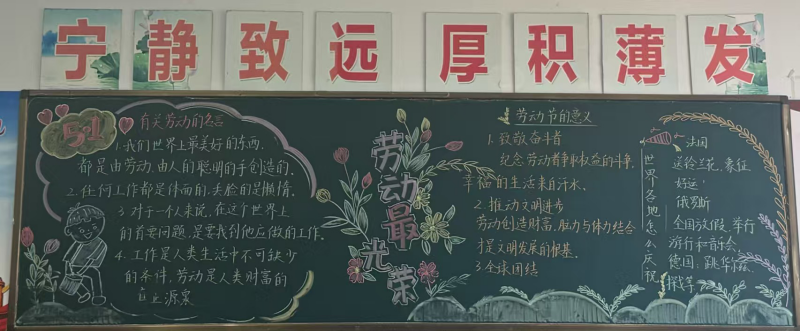 宁静致远 厚积薄发
5·1
有关劳动的名言
1.我们世界上最美好的东西,
都是由劳动、由人的聪明的手创造的.
2.任何工作都是体面的,丢脸的是懒惰.
3.对于一个人来说,在这个世界上
的首要问题,是要找到他应做的工作.
4.工作是人类生活中不可缺少
的条件,劳动是人类财富的
源泉
劳动最光荣
劳动节的意义
1.致敬奋斗者
纪念劳动者争取权益的斗争,
幸福的生活来自汗水.
2.推动文明进步
劳动创造财富,脑力与体力结合
才是文明发展的根基.
3.全球团结
世界各地怎么庆祝
法国
送铃兰花,象征
好运!
俄罗斯
全国放假,举行
游行和音乐会.
德国:跳华尔兹,